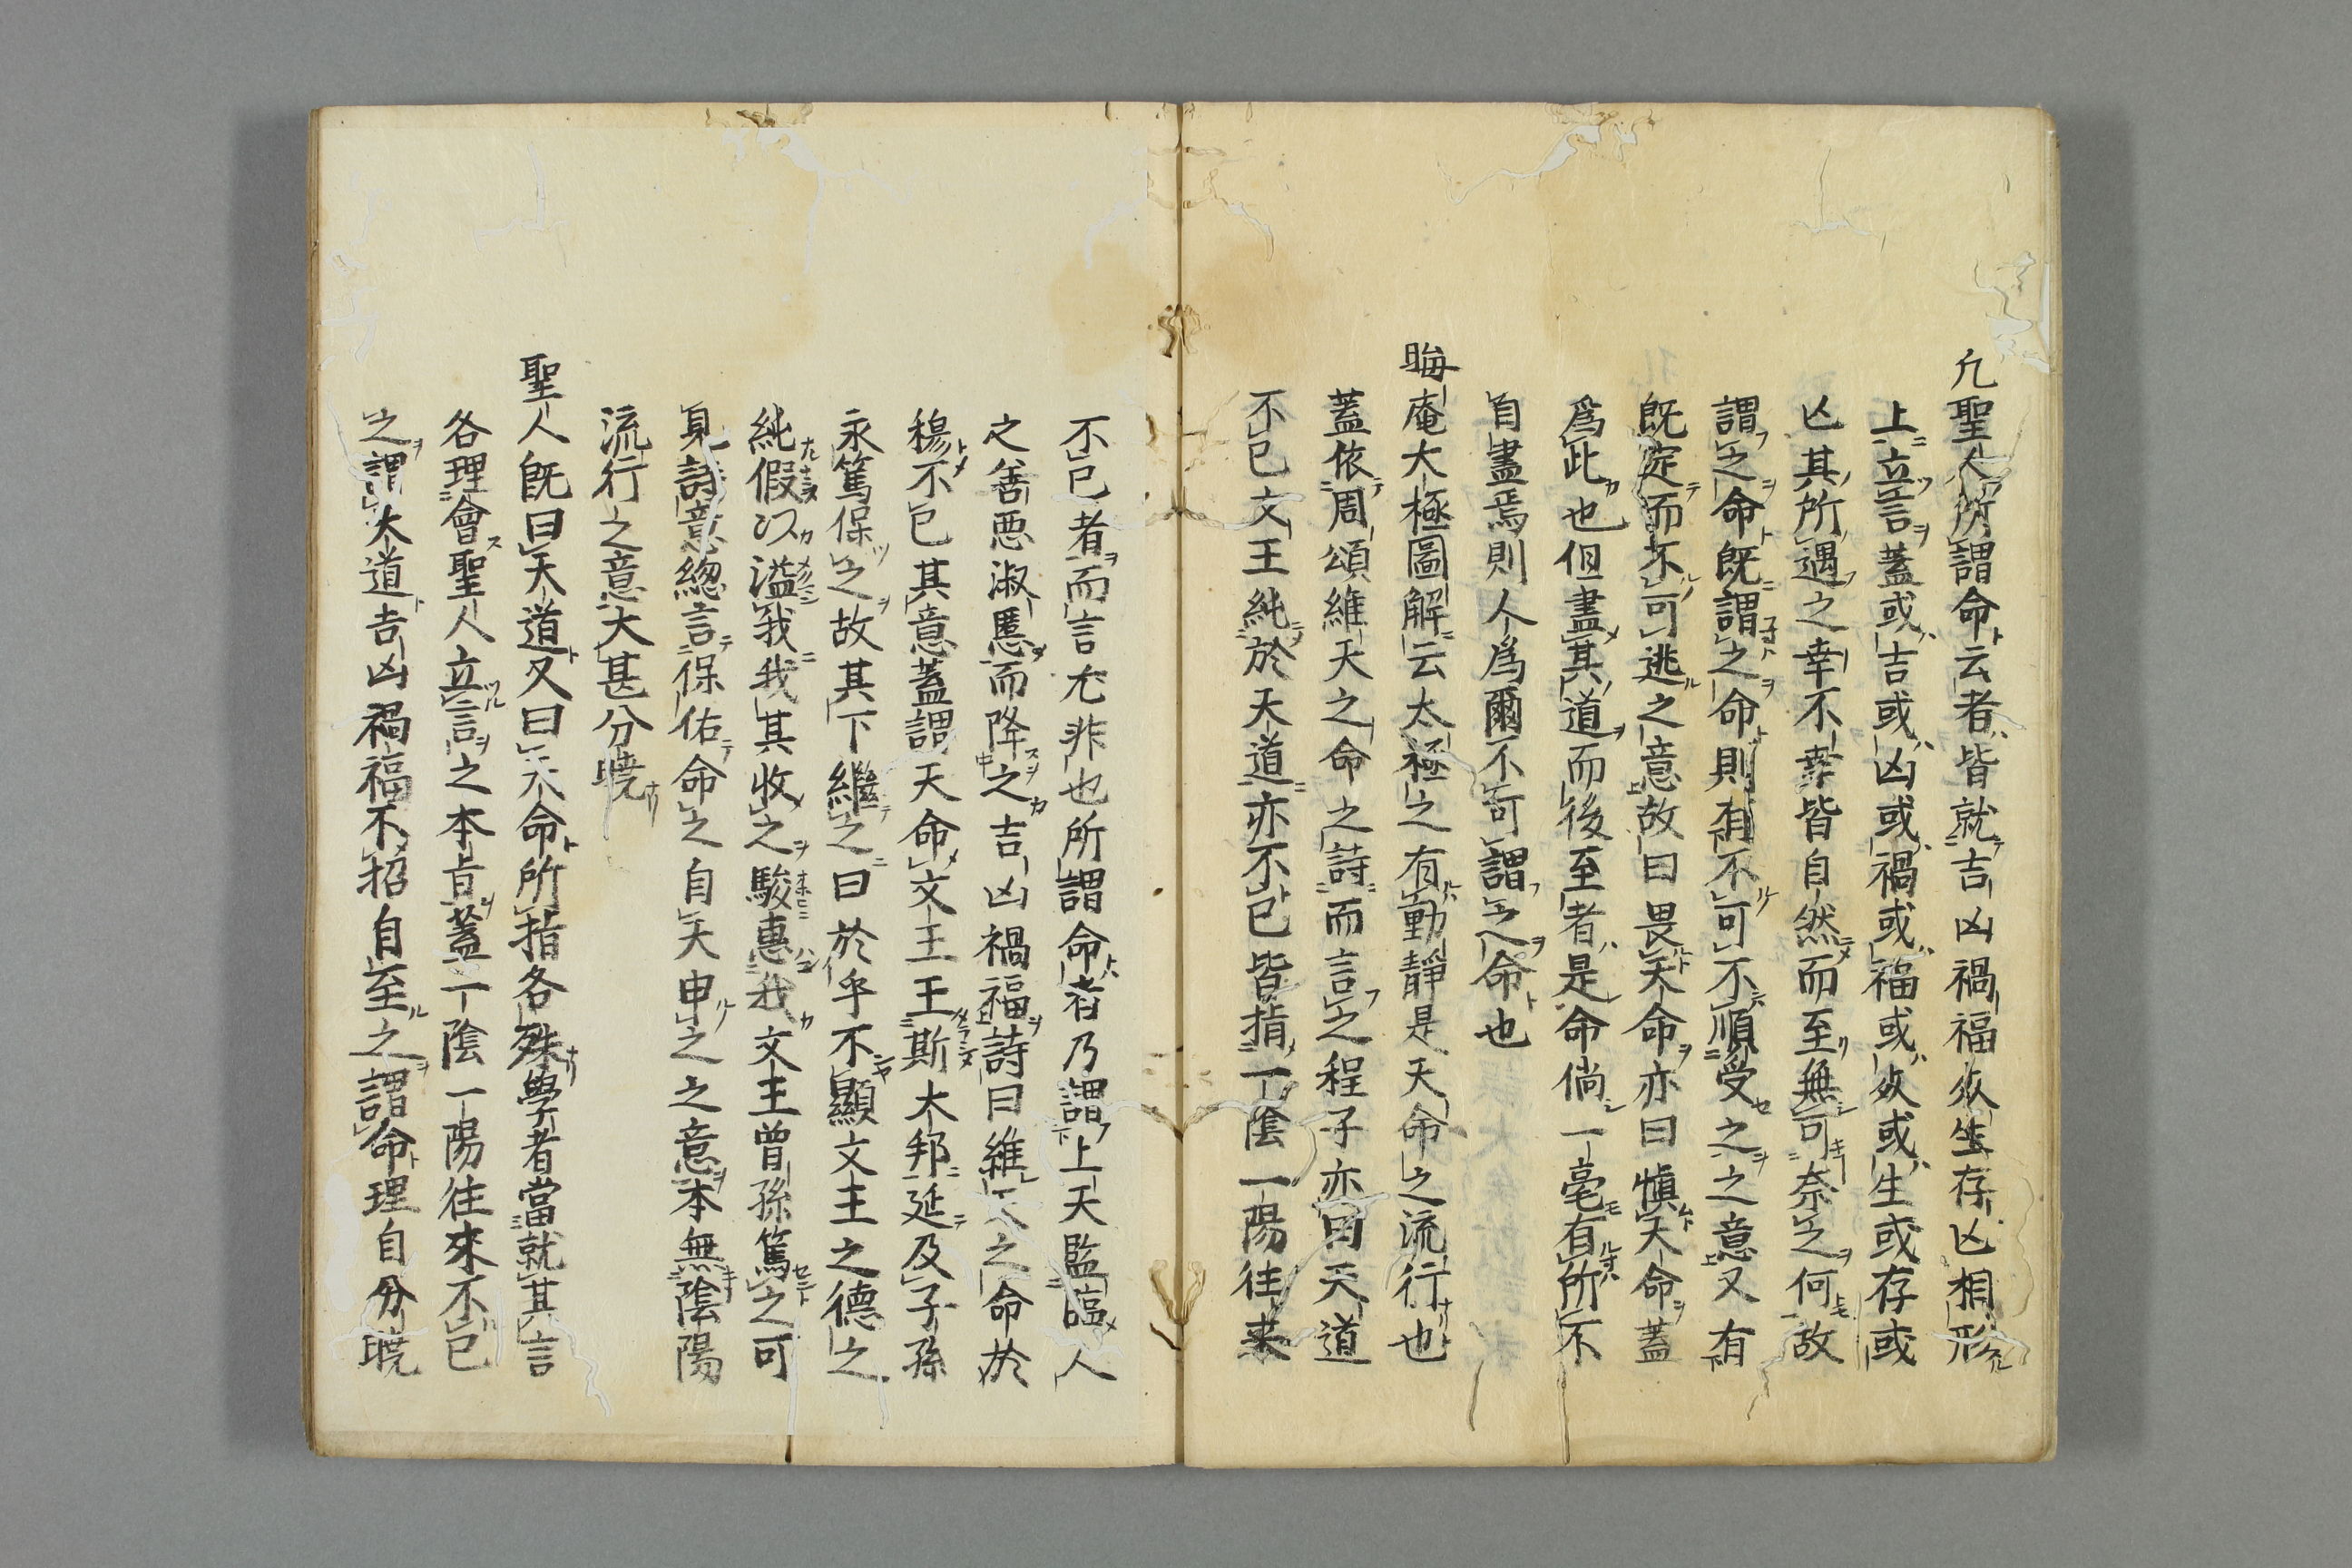 凢聖人所謂命云者皆就吉凶禍福死生存亡相形
上立言蓋或吉或凶或禍或福或死或生或存或
亡其所遇之幸不幸皆自然而至無可奈之何故
謂之命既謂之命則有不可不順受之之意又有
既定而不可逃之意故曰畏天命亦曰愼天命蓋
爲此也但盡其道而後至者是命倘一毫有所不
自盡焉則人爲爾不可謂之命也
晦庵大極圖解云太極之有動靜是天命之流行也
蓋依周頌維天之命之詩而言之程子亦曰天道
不已文王純於天道亦不已皆指一陰一陽往来
不已者而言尤非也所謂命者乃謂上天監臨人
之善悪淑慝而降之吉凶禍福詩曰維天之命於
穆不已其意蓋謂天命文王王斯大邦延及子孫
永篤保之故其下繼之曰於乎不顯文王之德之
純假以溢我我其收之駿惠我文王曽孫篤之可
見詩意緫言保佑命之自天申之之意本無陰陽
流行之意大甚分曉
聖人既曰天道又曰天命所指各殊學者當就其言
各理會聖人立言之本旨蓋一陰一陽往來不已
之謂大道吉凶禍福不招自至之謂命理自分曉